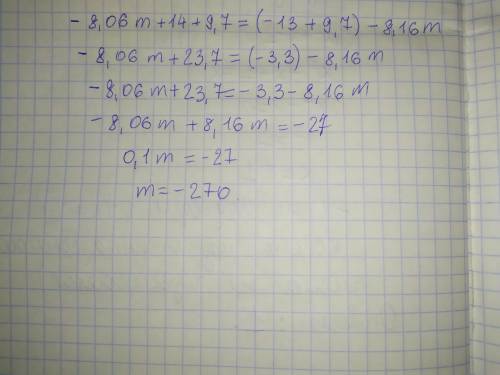 - 8,06 m + 14 + 9,7 = (-13 + 9,7) - 8,16 m
- 8,06 m + 23,7 = (-3,3) - 8,16 m
- 8,06 m + 23,7 = - 3,3 - 8,16 m
- 8,06 m + 8,16 m = - 27
0,1 m = - 27
m = - 270